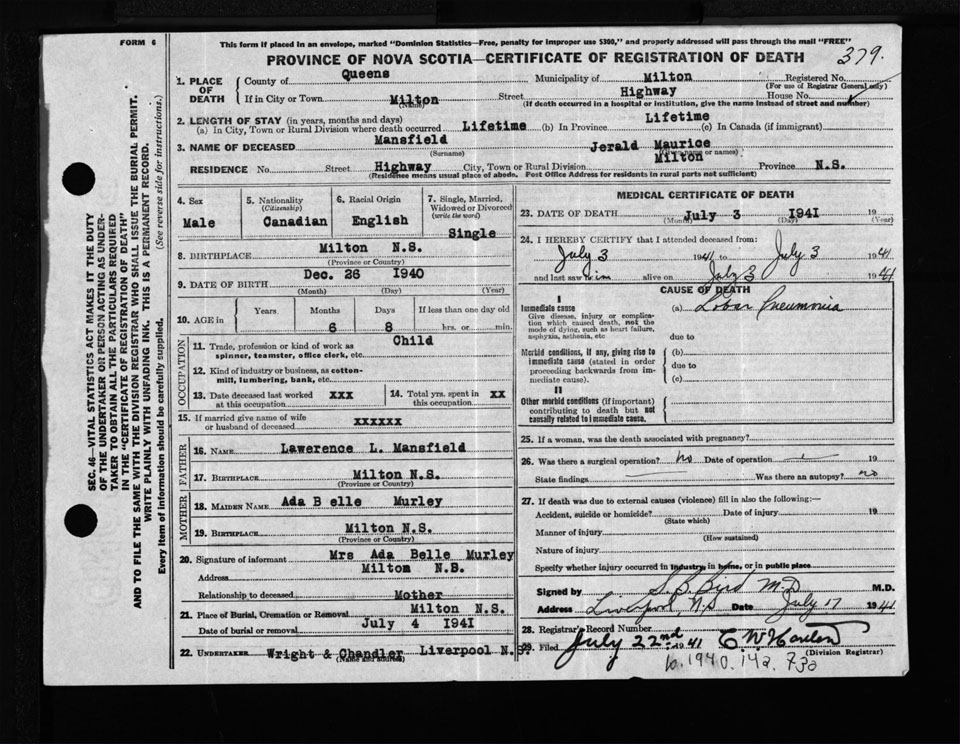 FORM 6
This form if placed in an envelope, marked "Dominion Statistics—Free, penalty for improper use $300," and properly addressed will pass through the mail "FREE"
PROVINCE OF NOVA SCOTIA—CERTIFICATE OF REGISTRATION OF DEATH 379.
1. PLACE OF DEATH
County of Queens Municipality of Milton Registered No.
(For use of Registrar General only)
If in City or Town Milton Street Highway House No.
(Name) (If death occurred in a hospital or institution, give the name instead of street and number)
2. LENGTH OF STAY (in years, months and days)
(a) In City, Town or Rural Division where death occurred Lifetime (b) In Province Lifetime (c) In Canada (if immigrant)
3. NAME OF DECEASED Mansfield Jerald Maurice
(Surname) (Given name or names)
RESIDENCE No. Street Highway City, Town or Rural Division Milton Province N.S.
(Residence means usual place of abode. Post Office Address for residents in rural parts not sufficient)
4. Sex
Male
5. Nationality
(Citizenship)
Canadian
6. Racial Origin
English
7. Single, Married, Widowed or Divorced
(write the word)
Single
8. BIRTHPLACE Milton N.S.
(Province or Country)
9. DATE OF BIRTH Dec. 26 1940
(Month) (Day) (Year)
10. AGE in Years Months Days If less than one day old
6 8 hrs. or min.
OCCUPATION
11. Trade, profession or kind of work as Child
spinner, teamster, office clerk, etc.
12. Kind of industry or business, as cotton-
mill, lumbering, bank, etc.
13. Date deceased last worked at this occupation xxx
14. Total yrs. spent in this occupation xx
15. If married give name of wife or husband of deceased xxxxxx
FATHER
16. NAME Lawerence L. Mansfield
17. BIRTHPLACE Milton N.S.
(Province or Country)
MOTHER
18. MAIDEN NAME Ada B elle Murley
19. BIRTHPLACE Milton N.S.
(Province or Country)
20. Signature of informant Mrs Ada Belle Murley
Address Milton N.S.
Relationship to deceased Mother
21. Place of Burial, Cremation or Removal Milton N.S.
Date of burial or removal July 4 1941
22. UNDERTAKER Wright & Chandler Liverpool N.S.
(Name and address)
MEDICAL CERTIFICATE OF DEATH
23. DATE OF DEATH July 3 1941 19
(Month) (Day) (Year)
24. I HEREBY CERTIFY that I attended deceased from:
July 3 1941 to July 3 1941
and last saw him alive on July 3 1941
CAUSE OF DEATH
I
Immediate cause (a) Lobar Pneumonia
Give disease, injury or complica-
tion which caused death, not the
mode of dying, such as heart failure,
asphyxia, asthenia, etc due to
Morbid conditions, if any, giving rise to (b)
immediate cause (stated in order due to
proceeding backwards from im-
mediate cause). (c)
II
Other morbid conditions (if important)
contributing to death but not
causally related to immediate cause.
25. If a woman, was the death associated with pregnancy?
26. Was there a surgical operation? no Date of operation 19
State findings Was there an autopsy? no
27. If death was due to external causes (violence) fill in also the following:—
Accident, suicide or homicide? Date of injury 19
(State which)
Manner of injury
(How sustained)
Nature of injury
Specify whether injury occurred in industry, in home, or in public place
Signed by S. B. Bird M.D M.D.
Address Liverpool, N.S Date July 17 1941
28. Registrar's Record Number
29. Filed July 22nd 1941
(Division Registrar)
SEC. 46—VITAL STATISTICS ACT MAKES IT THE DUTY
OF THE UNDERTAKER OR PERSON ACTING AS UNDER-
TAKER TO OBTAIN ALL THE PARTICULARS REQUIRED
IN THE "CERTIFICATE OF REGISTRATION OF DEATH"
AND TO FILE THE SAME WITH THE DIVISION REGISTRAR WHO SHALL ISSUE THE BURIAL PERMIT.
WRITE PLAINLY WITH UNFADING INK. THIS IS A PERMANENT RECORD.
Every item of information should be carefully supplied. (See reverse side for instructions.)